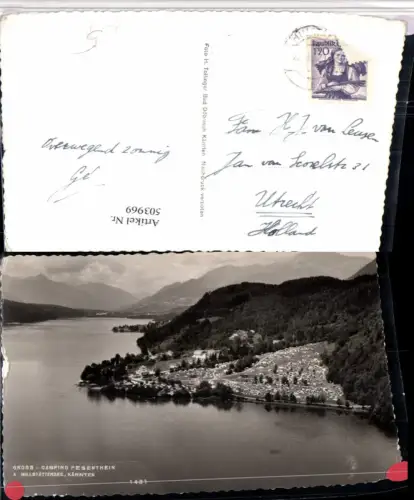 Republik
1.20
Foto H. Tollinger Bad Döbriach Kärnten Nachdruck verboten
Fam. H. J. van Leusen
Jan van Scorelstr 31
Utrecht
Holland
Overwegend zonnig
Artikel Nr.
503969
GROSS-CAMPING PESENTHEIN
A. MILLSTÄTTERSEE, KÄRNTEN
1481